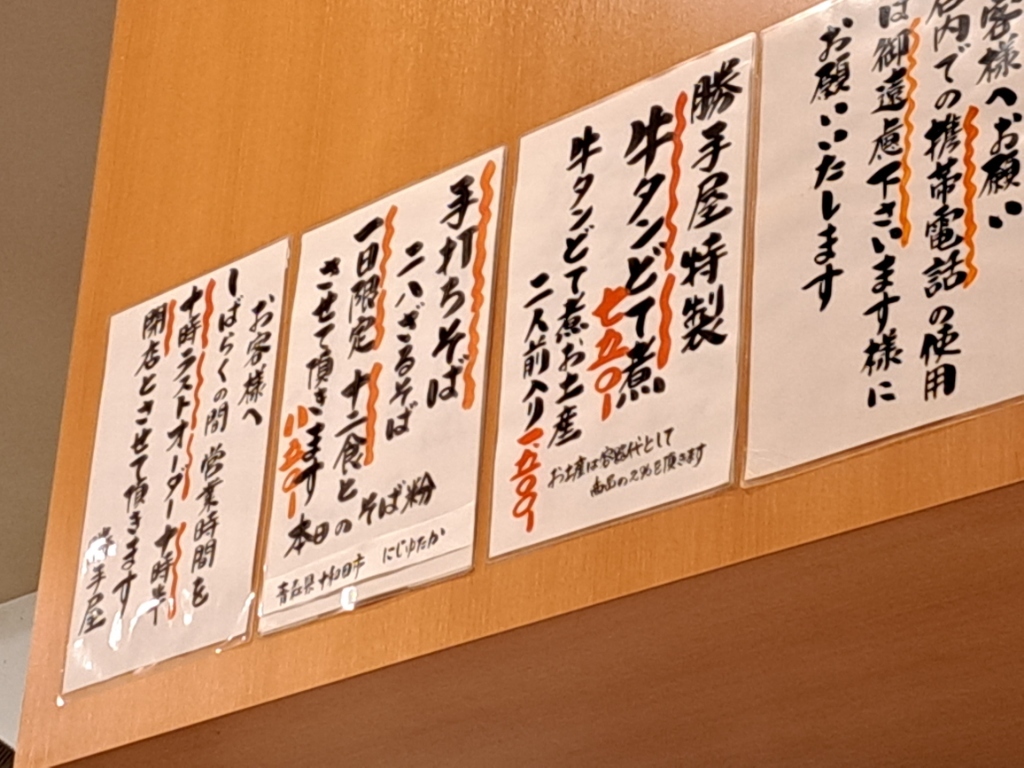 客様へお願い
店内での携帯電話の使用
は御遠慮下さいます様に
お願いいたします
勝手屋特製
牛タンどて煮
七五〇-
牛タンどて煮お土産
二人前入り一、五〇〇
お土産は容器代として
手打ちそば
二八ざるそば
一日限定 十二食と
させて頂きます
八五〇-
本日の そば粉
青森県十和田市 にじゆたか
お客様へ
しばらくの間 営業時間を
十時ラストオーダー十時半
閉店とさせて頂きます
勝手屋